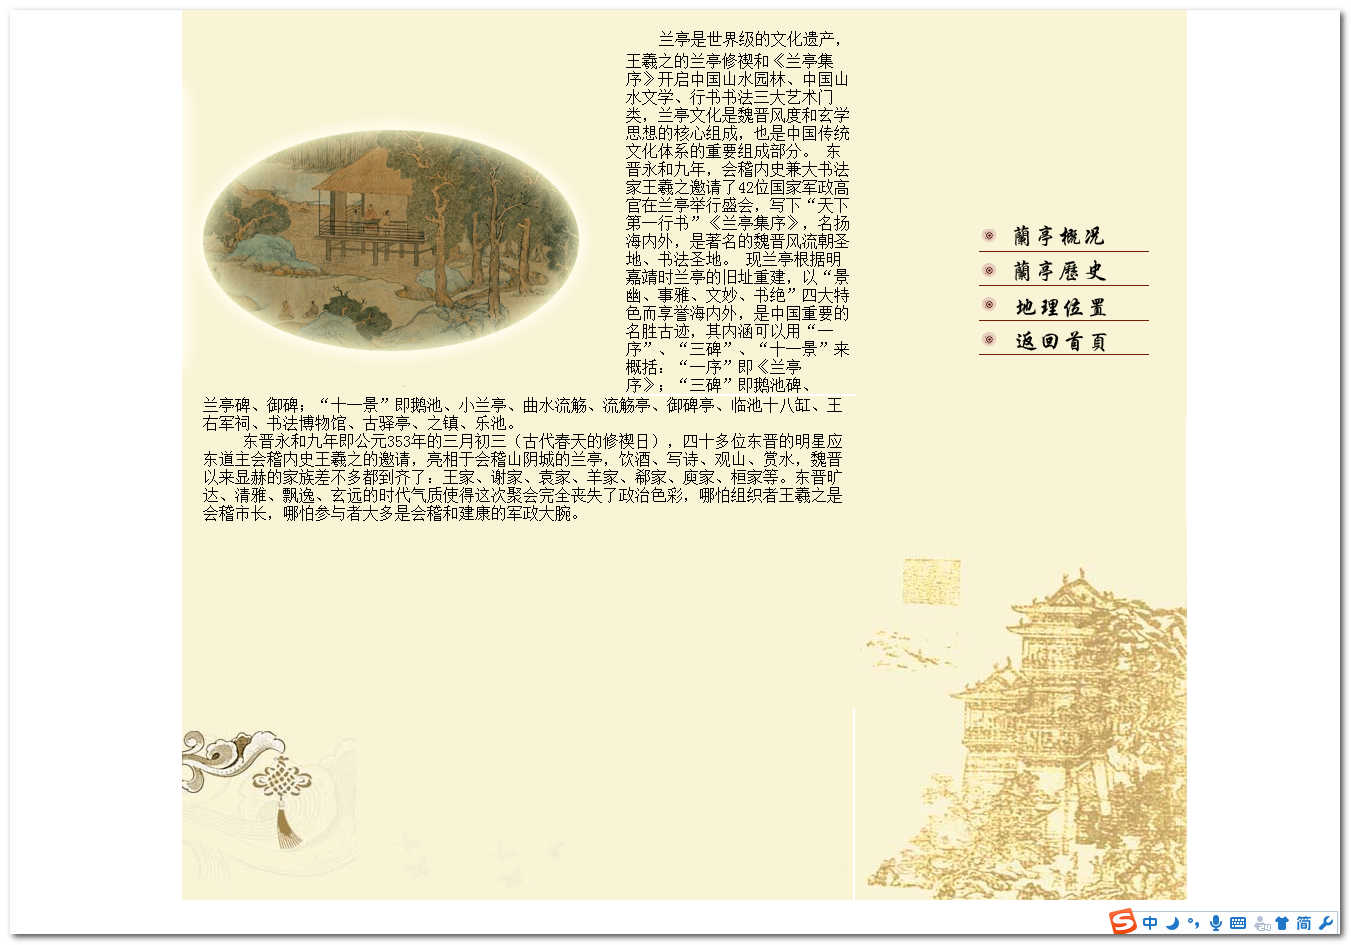 兰亭是世界级的文化遗产，
王羲之的兰亭修禊和《兰亭集
序》开启中国山水园林、中国山
水文学、行书书法三大艺术门
类，兰亭文化是魏晋风度和玄学
思想的核心组成，也是中国传统
文化体系的重要组成部分。 东
晋永和九年，会稽内史兼大书法
家王羲之邀请了42位国家军政高
官在兰亭举行盛会，写下“天下
第一行书”《兰亭集序》，名扬
海内外，是著名的魏晋风流朝圣
地、书法圣地。 现兰亭根据明
嘉靖时兰亭的旧址重建，以“景
幽、事雅、文妙、书绝”四大特
色而享誉海内外，是中国重要的
名胜古迹，其内涵可以用“一
序”、“三碑”、“十一景”来
概括：“一序”即《兰亭
序》；“三碑”即鹅池碑、
兰亭碑、御碑；“十一景”即鹅池、小兰亭、曲水流觞、流觞亭、御碑亭、临池十八缸、王
右军祠、书法博物馆、古驿亭、之镇、乐池。
东晋永和九年即公元353年的三月初三（古代春天的修禊日），四十多位东晋的明星应
东道主会稽内史王羲之的邀请，亮相于会稽山阴城的兰亭，饮酒、写诗、观山、赏水，魏晋
以来显赫的家族差不多都到齐了：王家、谢家、袁家、羊家、郗家、庾家、桓家等。东晋旷
达、清雅、飘逸、玄远的时代气质使得这次聚会完全丧失了政治色彩，哪怕组织者王羲之是
会稽市长，哪怕参与者大多是会稽和建康的军政大腕。
蘭亭概况
蘭亭歷史
地理位置
返回首頁
中
简